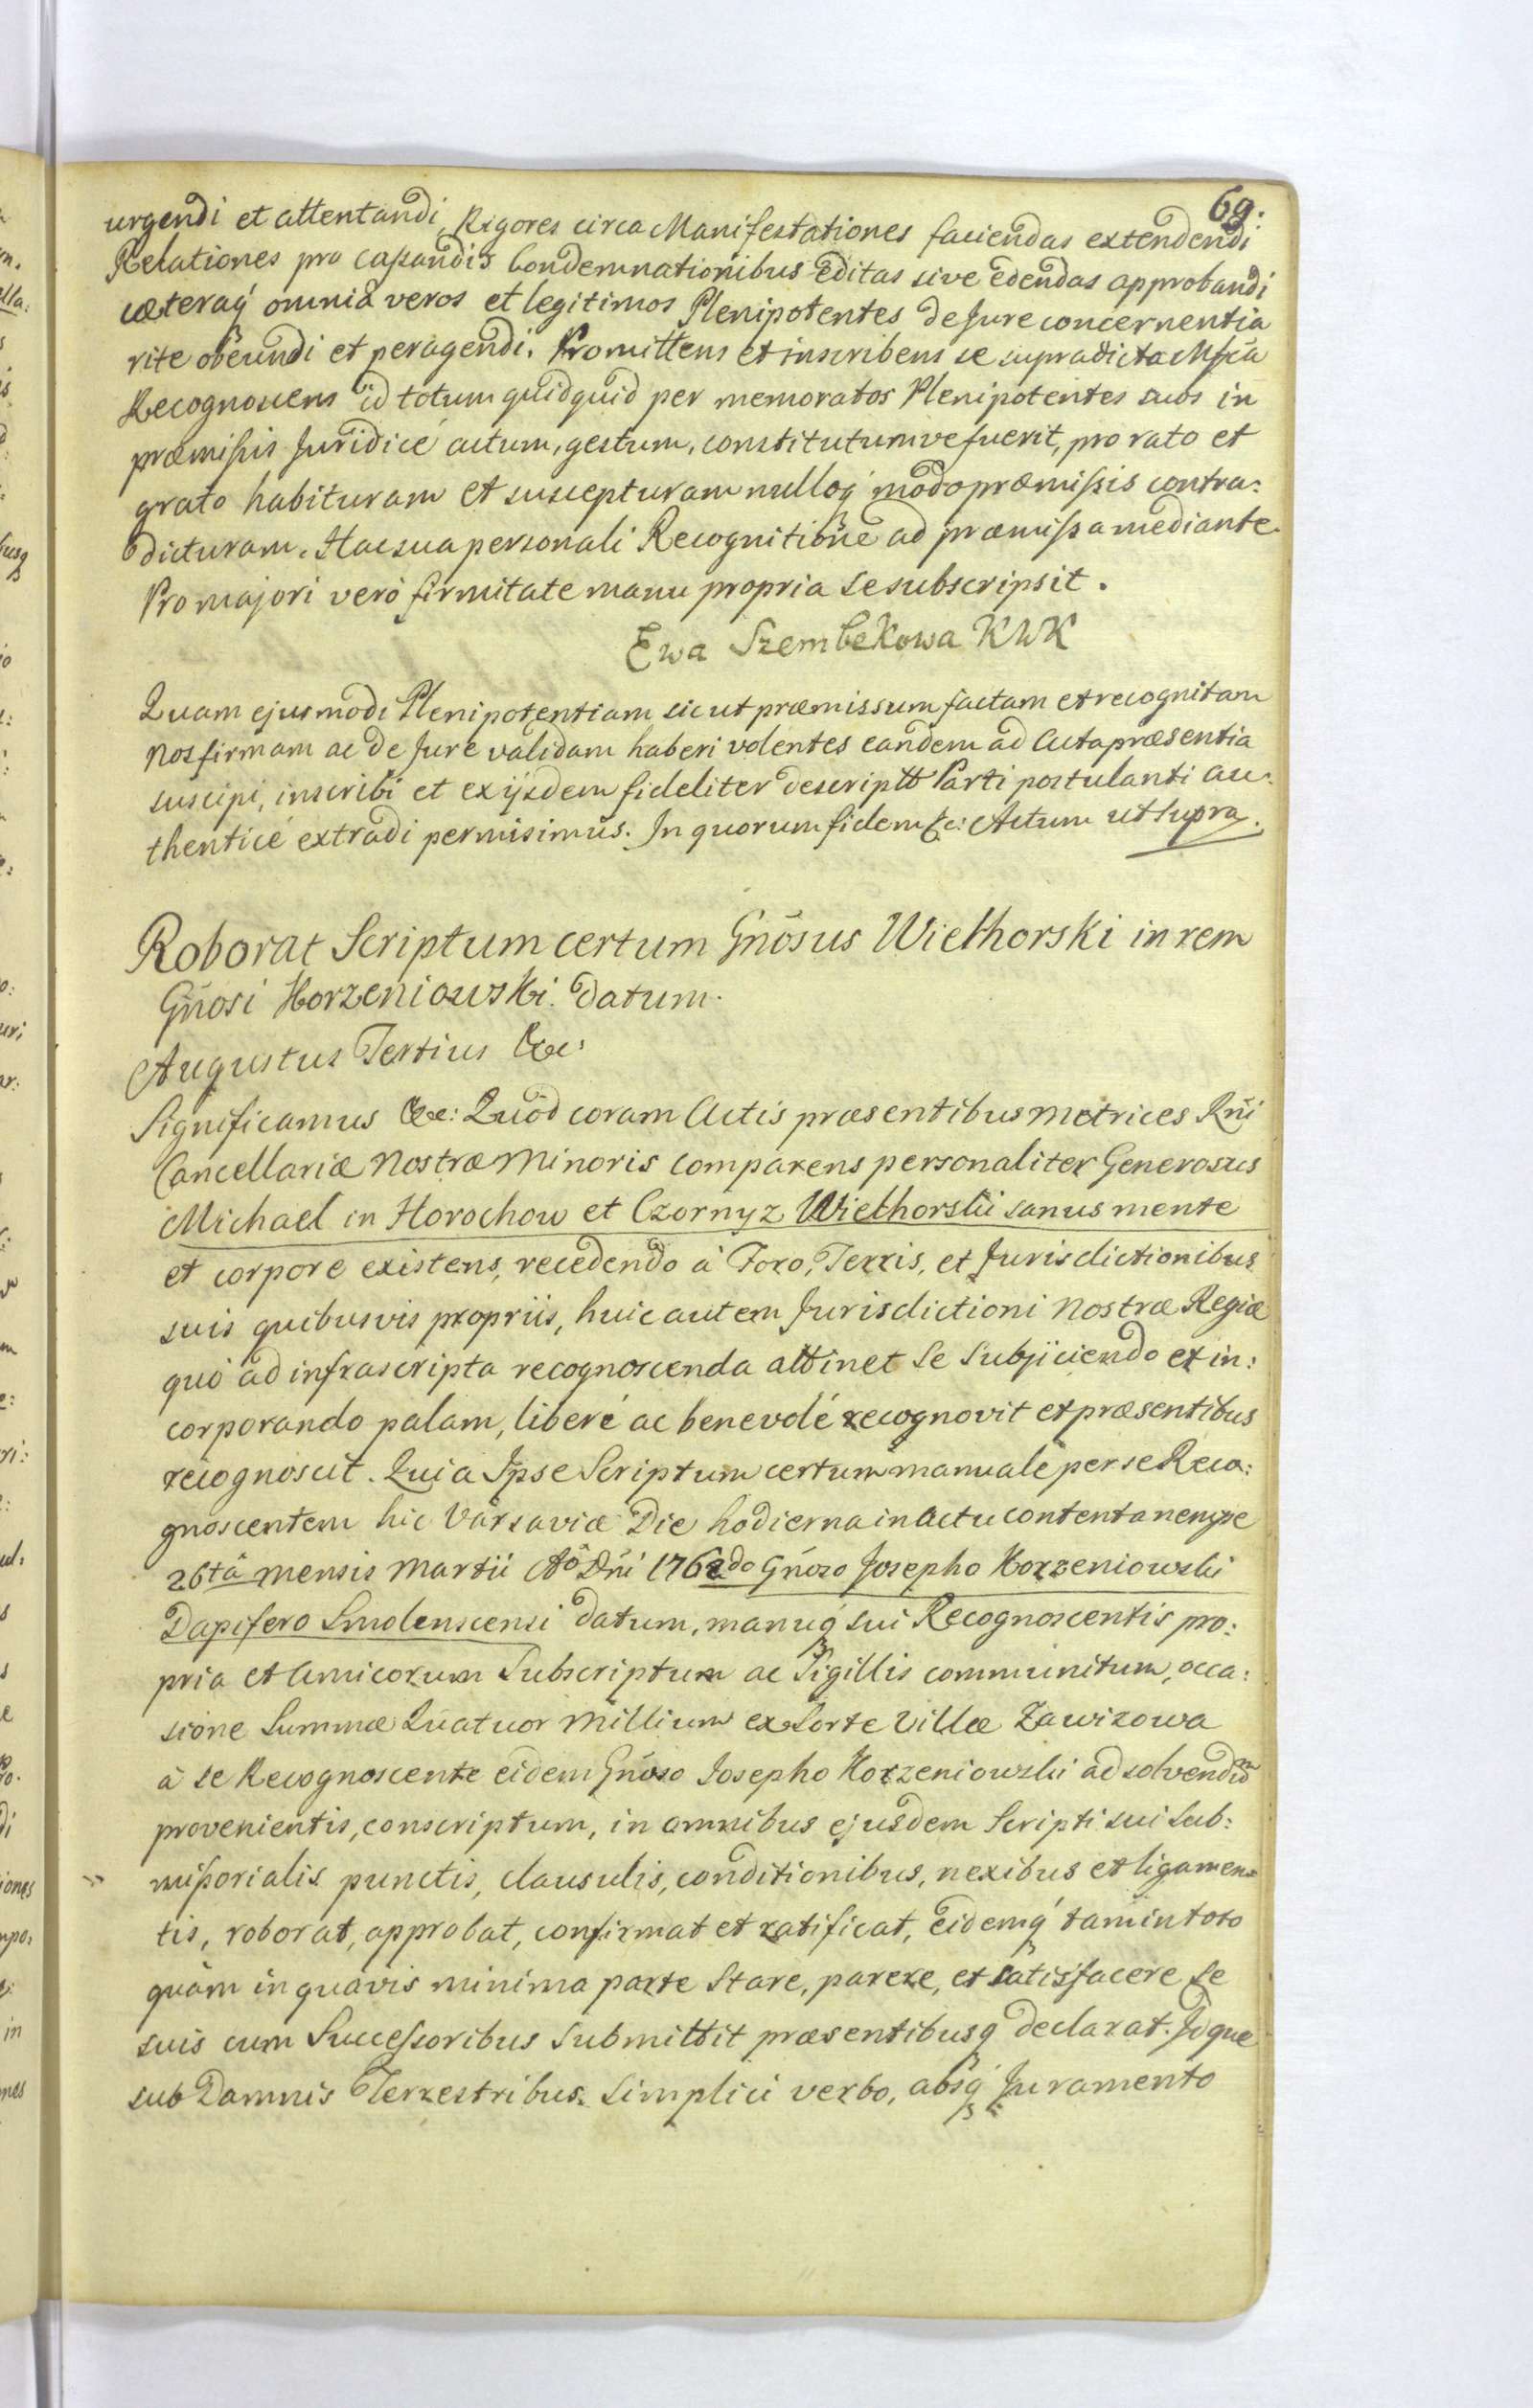 69.
urgendi et attentandi, Rigores circa Manifestationes faciendas extendendi
Relationes pro cassandis Condemnationibus editas sive edendas approbandi
cæteraq́ omnia veros et legitimos Plenipotentes de Jure concernentia
rite obeundi et peragendi. Promittens et inscribens se supradicta Mfca
Recognoscens id totum quidquid per memoratos Plenipotentes suos in
præmissis Juridicé actum, gestum, constitutumve fuerit, pro rato et
grato habituram et suscepturam nulloq́ modo præmissis contra:
dicturam. Hac sua personali Recognitione ad præmissa mediante.
Pro majori veró firmitate manu propria se subscripsit.
Ewa Szembekowa KWK
Quam ejusmodi Plenipotentiam sicut præmissum factam et recognitam
Nos firmam ac de Jure validam haberi volentes eandem ad Acta præsentia
suscipi, inscribi et ex ijsdem fideliter descriptt Parti postulanti au:
thenticé extradi permisimus. In quorum fidem &c: Actum ut supra.
Roborat Scriptum certum Gnõsus Wielhorski in rem
Gñosi Korzeniowski datum.
Augustus Tertius &c:
Significamus &c: Quod coram Actis præsentibus Metrices Rñi
Cancellariæ Nostræ Minoris comparens personaliter Generosus
Michael in Horochow et Czornyz Wielhorski sanus mente
et corpore existens, recedendo á Foro, Terris, et Jurisdictionibus
suis quibusvis propriis, huic autem Jurisdictioni Nostræ Regiæ
quó ad infrascripta recognoscenda attinet se subjiciendo et in:
corporando palam, liberé ac benevolé recognovit et præsentibus
recognoscit. Quia Ipse Scriptum certum manuale per se Reco:
gnoscentem hic Varsaviæ Die hodierna in Actu contenta nempe
26tâ mensis Martii Aõ Dñi 1762do Gñoso Josepho Korzeniowski
Dapifero Smolenscensi datum, manuq́ sui Recognoscentis pro:
pria et Amicorum Subscriptum ac Sigillis communitum, occa:
sione Summæ Quatuor Millium ex Sorte Villæ Zawizowa
à se Recognoscente eidem Gñoso Josepho Korzeniowski ad solvendum
provenientis, conscriptum, in omnibus ejusdem Scripti sui Sub:
missorialis punctis, clausulis, conditionibus, nexibus et ligamen:
tis, roborat, approbat, confirmat et ratificat, eidemq́ tam in toto
quàm in quavis minima parte Stare, parere, et satisfacere se
suis cum Successoribus submittit præsentibusq́ declarat. Idque
sub Damnis Terrestribus simplici verbo, absq́ Juramento